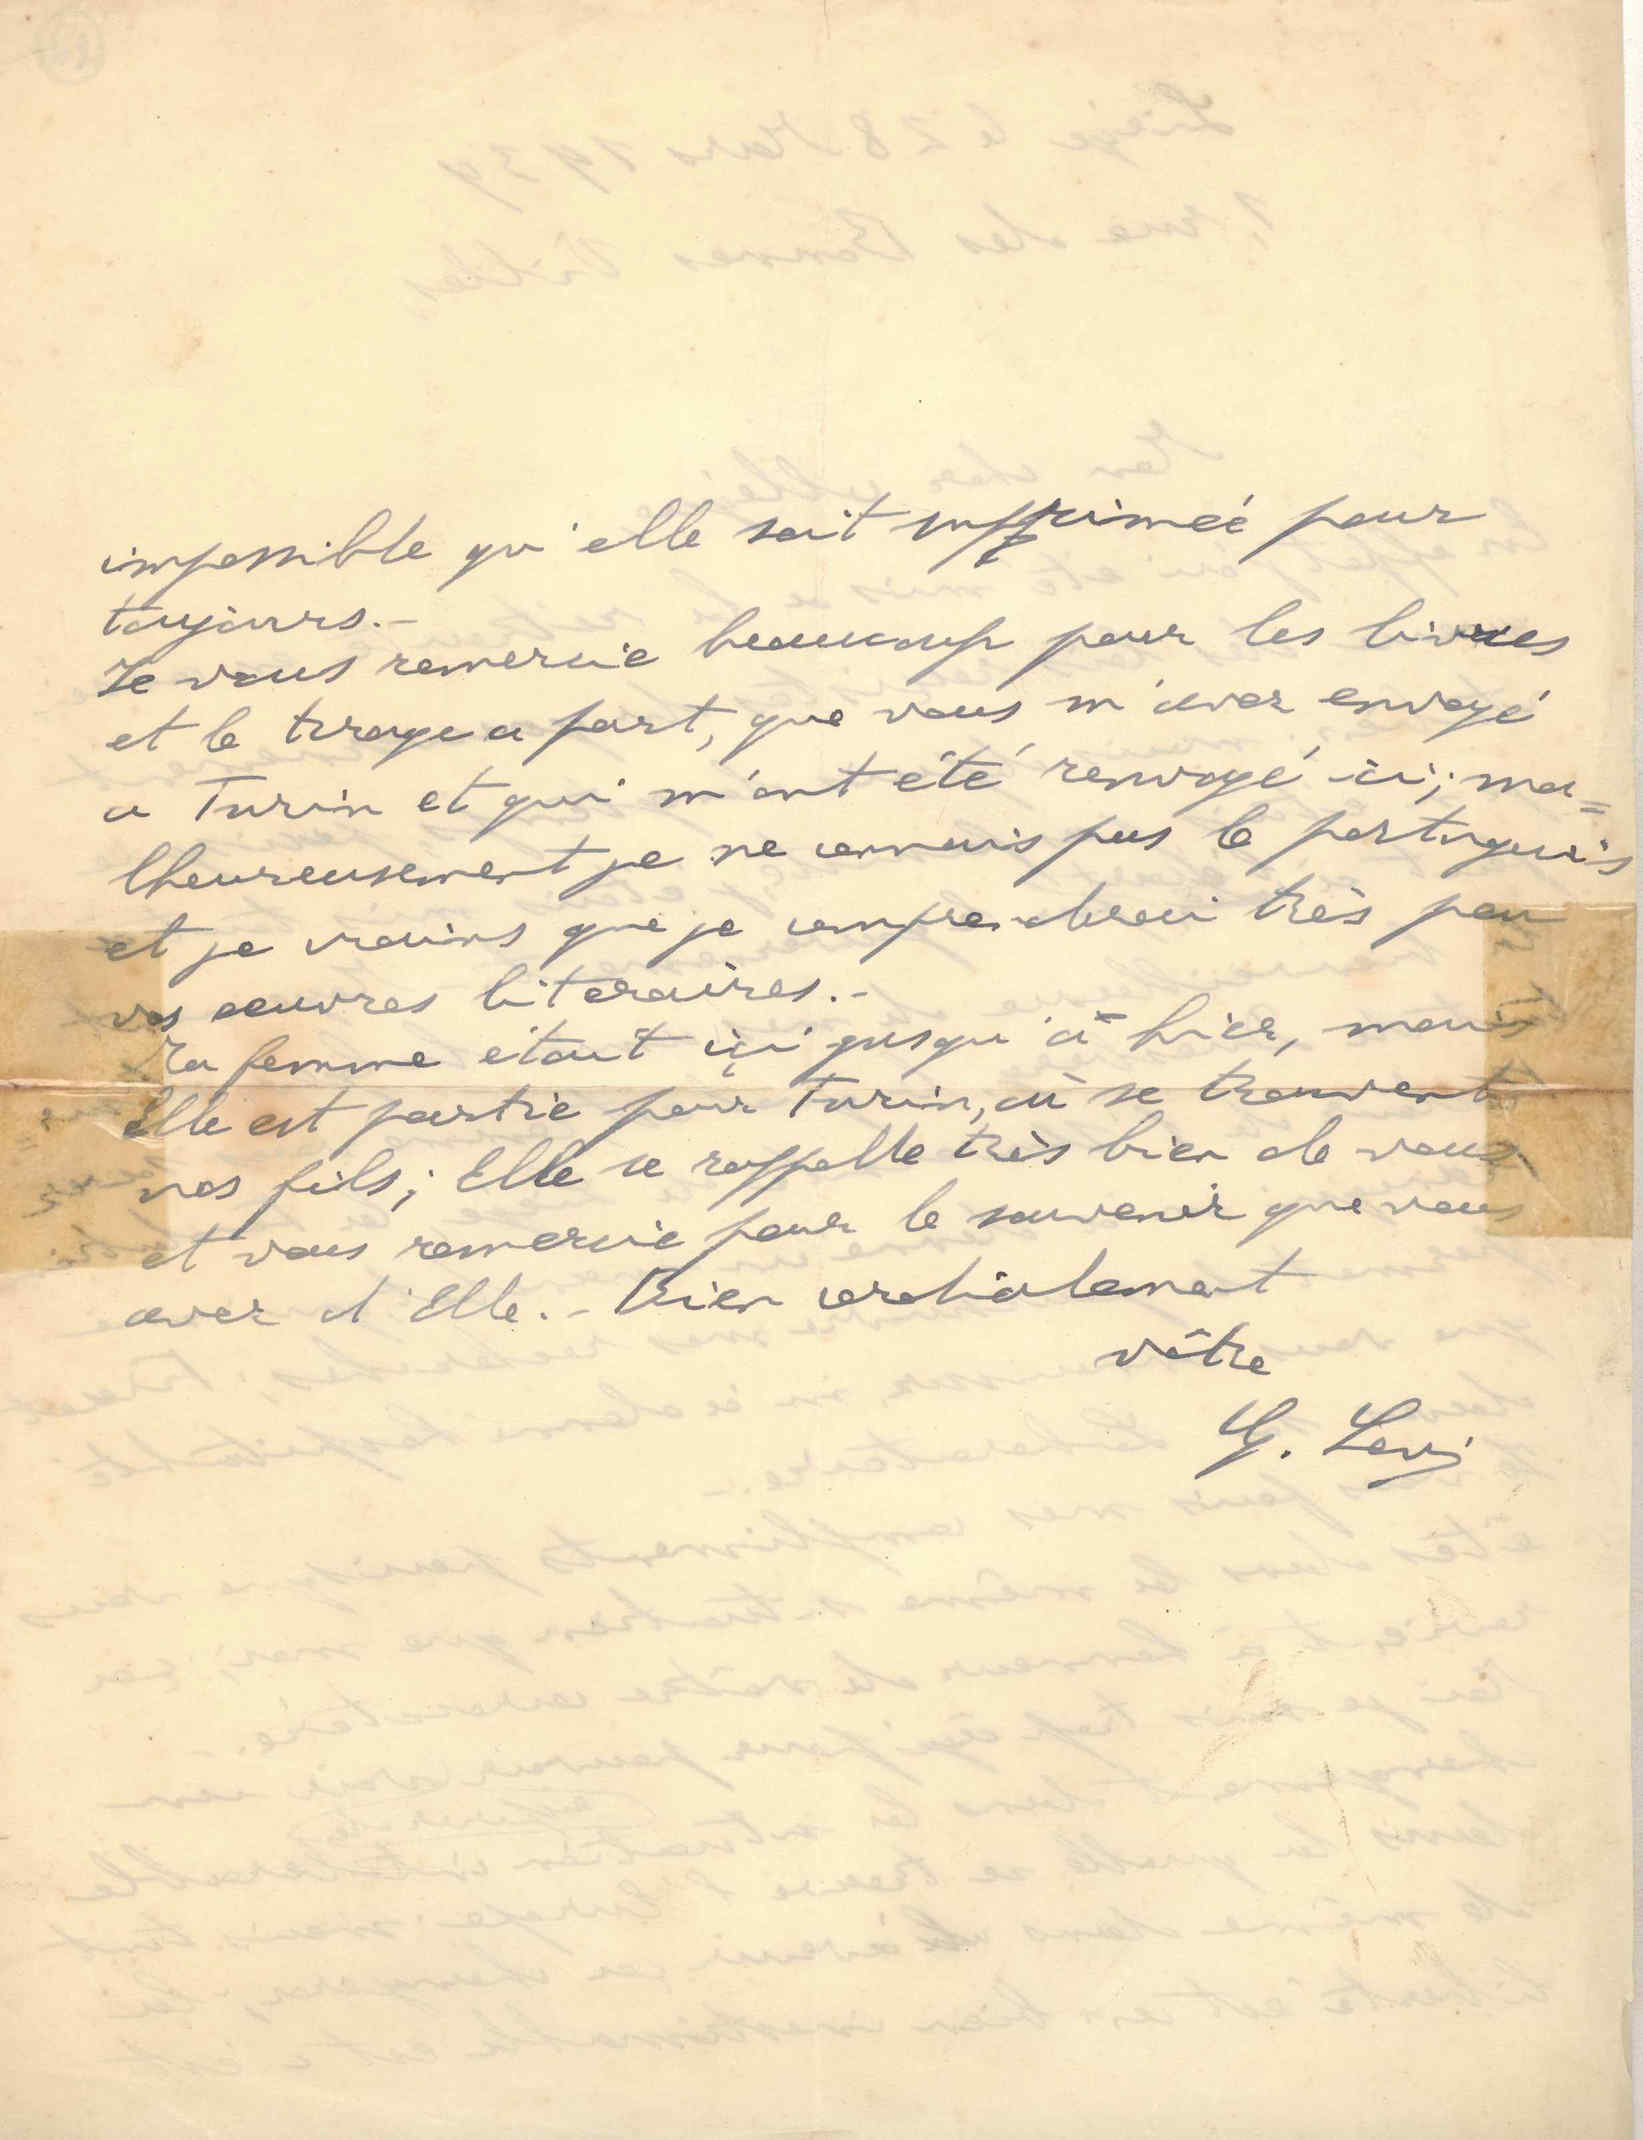 impossible qu'elle soit supprimée pour
toujours.-
Je vous remercie beaucoup pour les livres
et le tirage a part, que vous m'avez envoyé
a Turin et qui m'ont été renvoyé ici; ma=
lheureusement je ne connais pas le portugais
et je crains que je comprendrai très peu
vos oeuvres literaires.-
Ma femme etait içi jusqu'à hier, mais
Elle est partie pour Turin, où se trouvent
nos fils; Elle se rappelle très bien de vous
et vous remercie pour le souvenir que vous
avez d'Elle.- Bien cordialement
vôtre
G. Levi